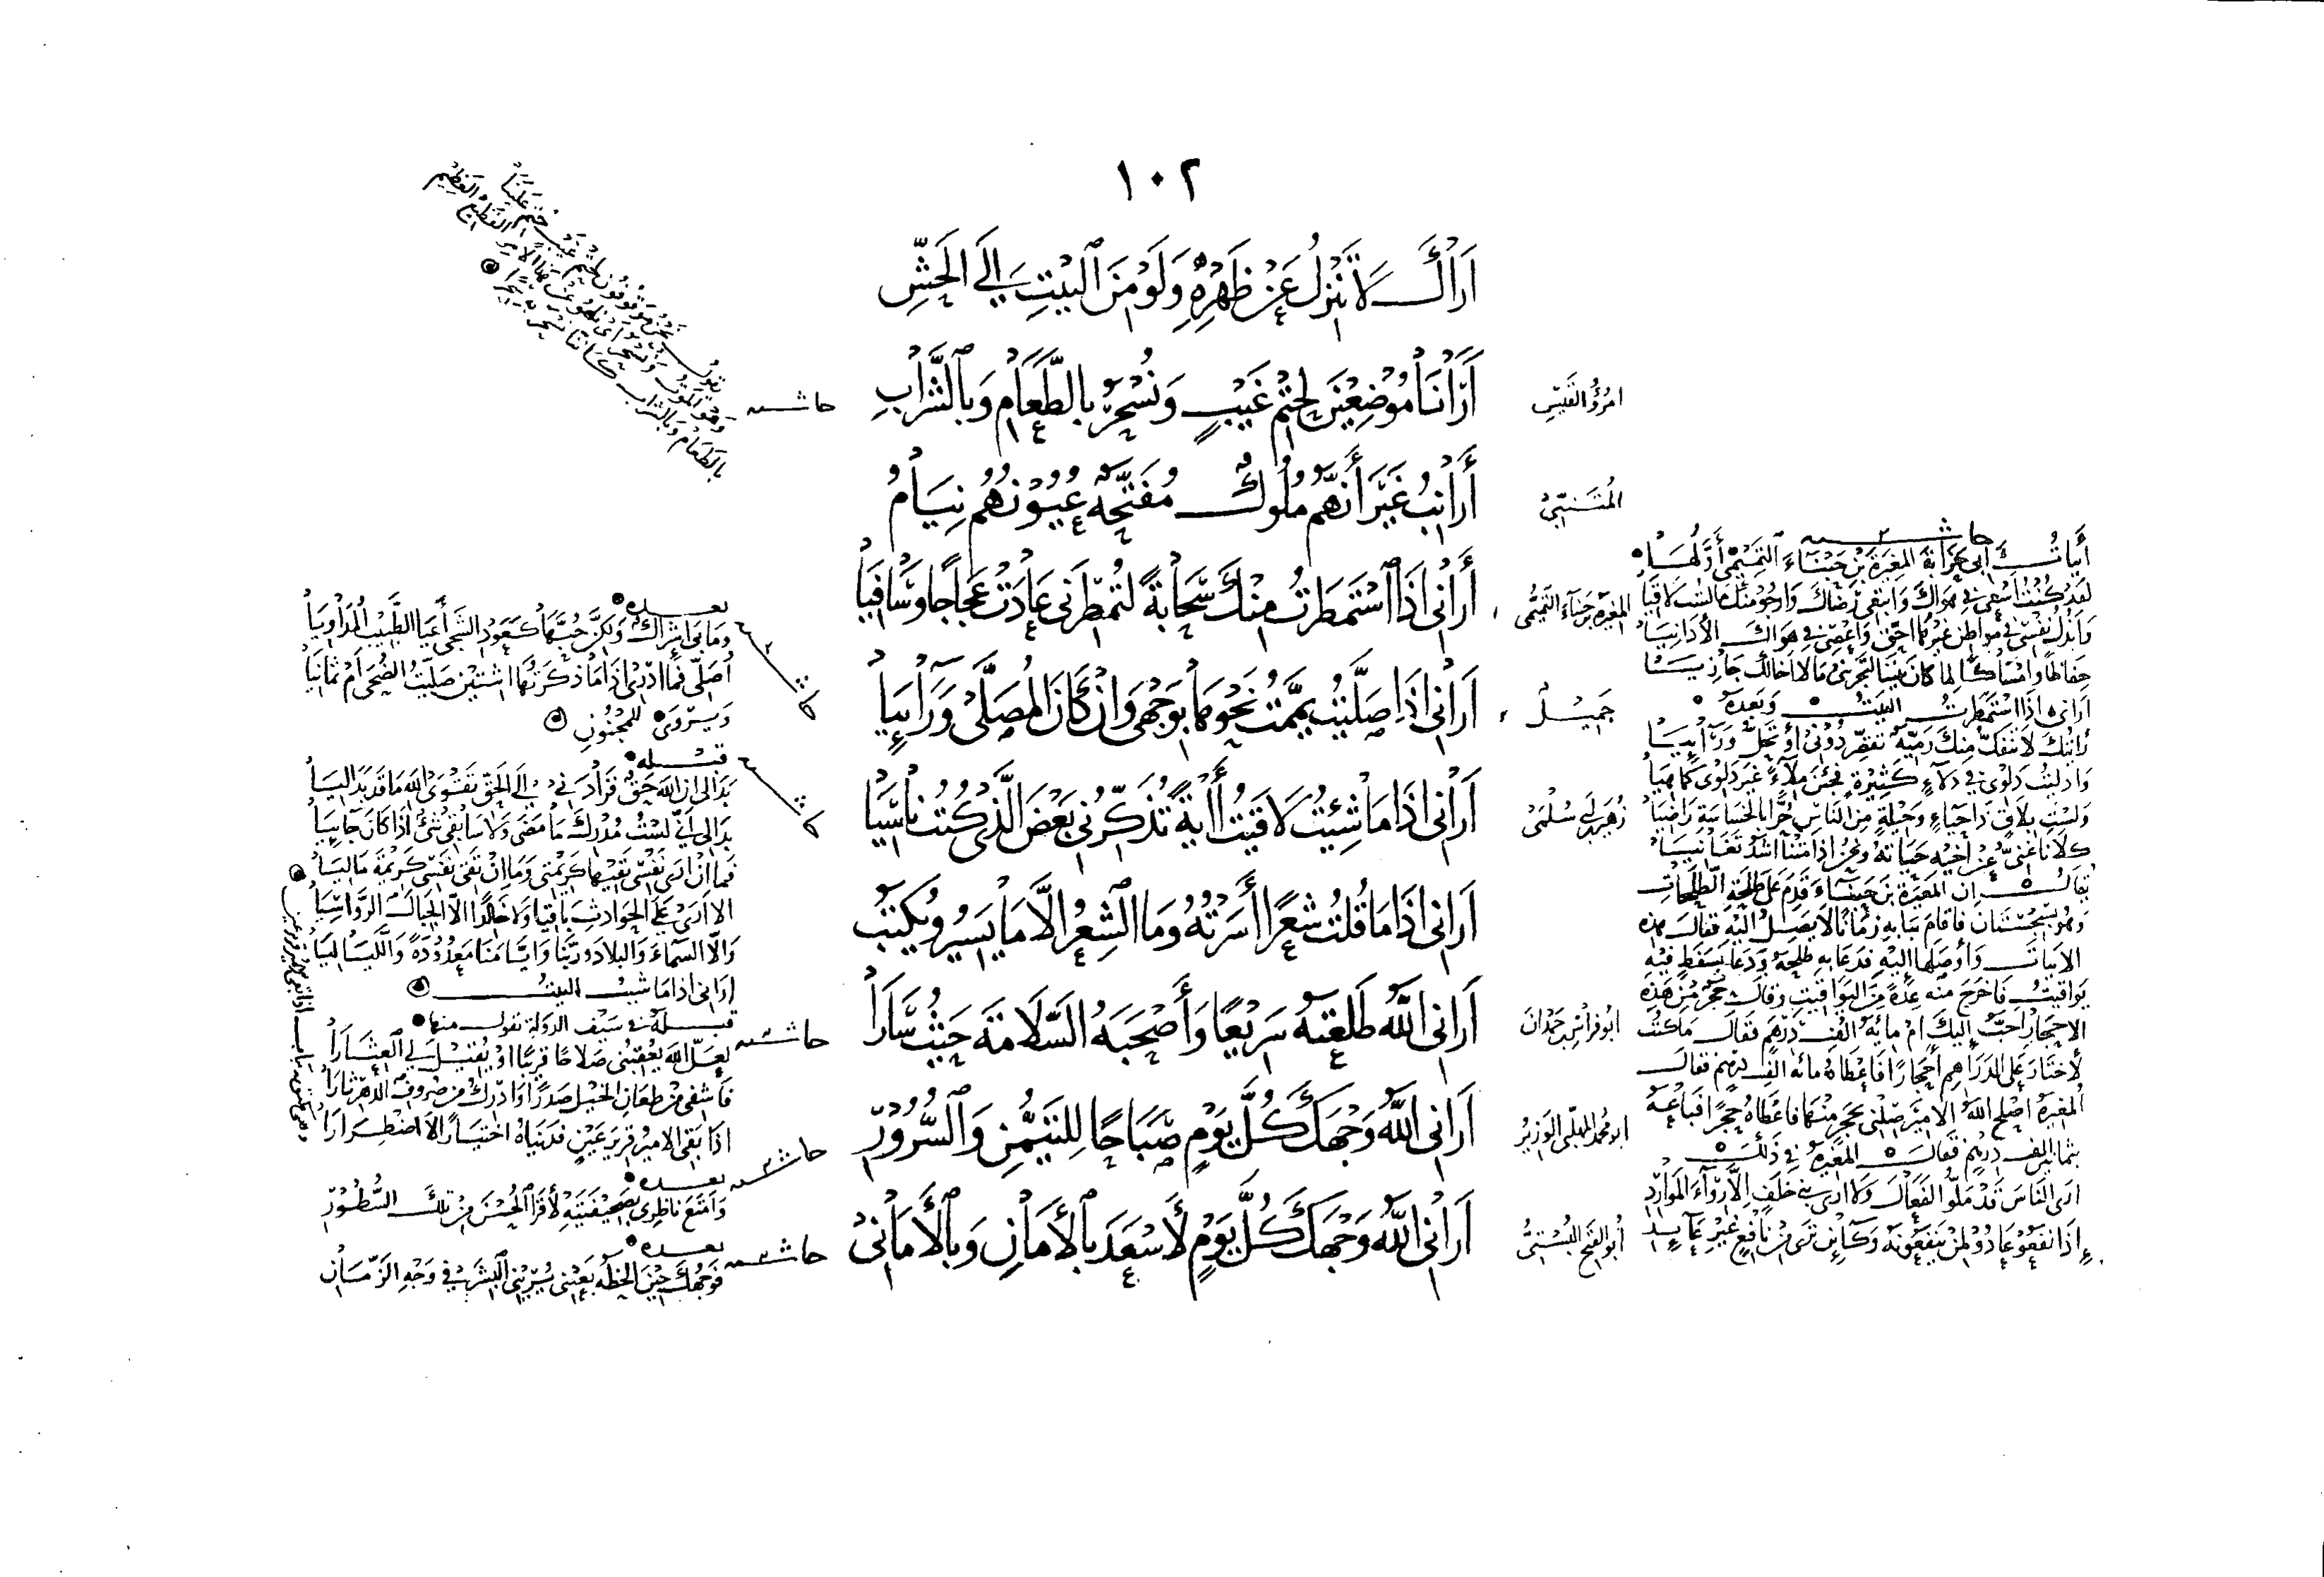 ١٠٢
أَرَاكَ لَا تَنْزِلُ عَنْ ظَهْرِهِ وَلَوْ مِنَ الْبَيْتِ إِلَى الْحُشِّ
امرؤ القيس
أَرَانَا مُوْضِعِيْنَ لِحَتْمِ غَيْبٍ وَنُسْحَرُ بِالطَّعَامِ وَبِالشَّرَابِ
حاشية
المتنبي
أَرَانِبُ غَيْرَ أَنَّهُمُ مُلُوكٌ مُفَتَّحَةٌ عُيُوْنُهُمُ نِيَامُ
المغيرة بن حبناء التميمي
أَرَانِي إِذَا اسْتَمْطَرْتُ مِنْكَ سَحَابَةً لِتُمْطِرَنِي عَادَتْ عَجَاجًا وَسَافِيَا
جميل
أَرَانِي إِذَا صَلَّيْتُ يَمَّمْتُ نَحْوَهَا بِوَجْهِي وَإِنْ كَانَ الْمُصَلَّى وَرَائِيَا
زهير بن أبي سلمى
أَرَانِي إِذَا مَا شِئْتُ لَاقَيْتُ آيَةً تُذَكِّرُنِي بَعْضَ الَّذِي كُنْتُ نَاسِيَا
أَرَانِي إِذَا مَا قُلْتُ شِعْرًا أَسَرْتُهُ وَمَا الشِّعْرُ إِلَّا مَا يَسِيرُ وَيُكْتَبُ
أبو فراس بن حمدان
أَرَانِي اللَّهُ طَلْعَتَهُ سَرِيْعًا وَأَصْحَبَهُ السَّلَامَةَ حَيْثُ سَارَا
حاشية
أبو محمد المهلبي الوزير
أَرَانِي اللَّهُ وَجْهَكَ كُلَّ يَوْمٍ صَبَاحًا لِلتَّيَمُّنِ وَالسُّرُوْرِ
حاشية
أبو الفتح البستي
أَرَانِي اللَّهُ وَجْهَكَ كُلَّ يَوْمٍ لِأَسْعَدَ بِالْأَمَانِ وَبِالْأَمَانِي
حاشية
حاشية
أبيات أبي حزابة المغيرة بن حبناء التميمي أولها
لقد كنت أسعى في هواك وأبتغي رضاك وأرجو منك ما لست لاقيا
وأبذل نفسي في مواطن غيرها أحق وأعصي في هواك الأدانيا
حفاظا وإمساكا لما كان بيننا لتجزيني ما لا إخالك جازيا
أراني إذا استمطرت البيت وبعده
رأيتك لا تنفك منك رمية تقصر دوني أو تحل ورائيا
وأدليت دلوي في دلاء كثيرة فجئن ملاء غير دلوي كما هيا
ولست بلاق ذا حياء وحيلة من الناس حرا بالخساسة راضيا
كلانا غني عن أخيه حياته ونحن إذا متنا أشد تغانيا
يقال إن المغيرة بن حبناء قدم على طلحة الطلحات
وهو بسجستان فأقام ببابه زمانا لا يصل إليه فقال هذه
الأبيات وأوصلها إليه فدعا به طلحة ودعا بسفط فيه
يواقيت فأخرج منه عدة من اليواقيت وقال حجر من هذه
الأحجار أحب إليك أم مائة ألف درهم فقال ما كنت
لأختار على الدراهم أحجارا فأعطاه مائة ألف درهم فقال
المغيرة أصلح الله الأمير صلني بحجر منها فأعطاه حجرا فباعه
بثمانين ألف درهم فقال المغيرة في ذلك
أرى الناس قد ملوا الفعال ولا أرى بني خلف إلا رواء الموارد
إذا نفعوا عادوا لمن ينفعونه وكائن ترى من نافع غير عائد
يقول نحن موقوفون لحتم غيب حتم علينا
بالطعام وبالشراب
بعده
وما بي إشراك ولكن حبها كعود الشجى أعيا الطبيب المداويا
أصلي فما أدري إذا ما ذكرتها اثنتين صليت الضحى أم ثمانيا
ويروى للمجنون
حاشية
قبله
بدا لي أن الله حق فزادني إلى الحق تقوى الله ما قد بدا ليا
بدا لي أني لست مدرك ما مضى ولا سابقي شيء إذا كان جائيا
حاشية
فما إن أرى نفسي تقيها كريمتي وما إن تقي نفسي كريمة ماليا
ألا لا أرى على الحوادث باقيا ولا خالدا إلا الجبال الرواسيا
وإلا السماء والبلاد وربنا وأيامنا معدودة واللياليا
أراني إذا ما شئت البيت
قبله في سيف الدولة يقول منها
لعل الله يعقبني صلاحا قريبا أو يقيل لي العثارا
فأشفي من طعان الخيل صدرا وأدرك من صروف الدهر ثارا
إذا بقي الأمير قرير عين فديناه اختيارا لا اضطرارا
بعده
وأمتع ناظري بصحيفتيه لأقرأ الحسن من تلك السطور
بعده
فوجهك حين ألحظه بعيني يريني البشر في وجه الزمان